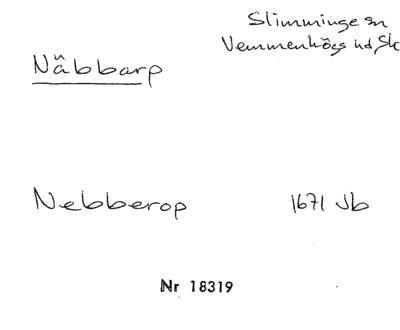 Slimminge sn
Vemmenhögs hd Sk
Näbbarp
Nebberop 1671 Jb
Nr 18319